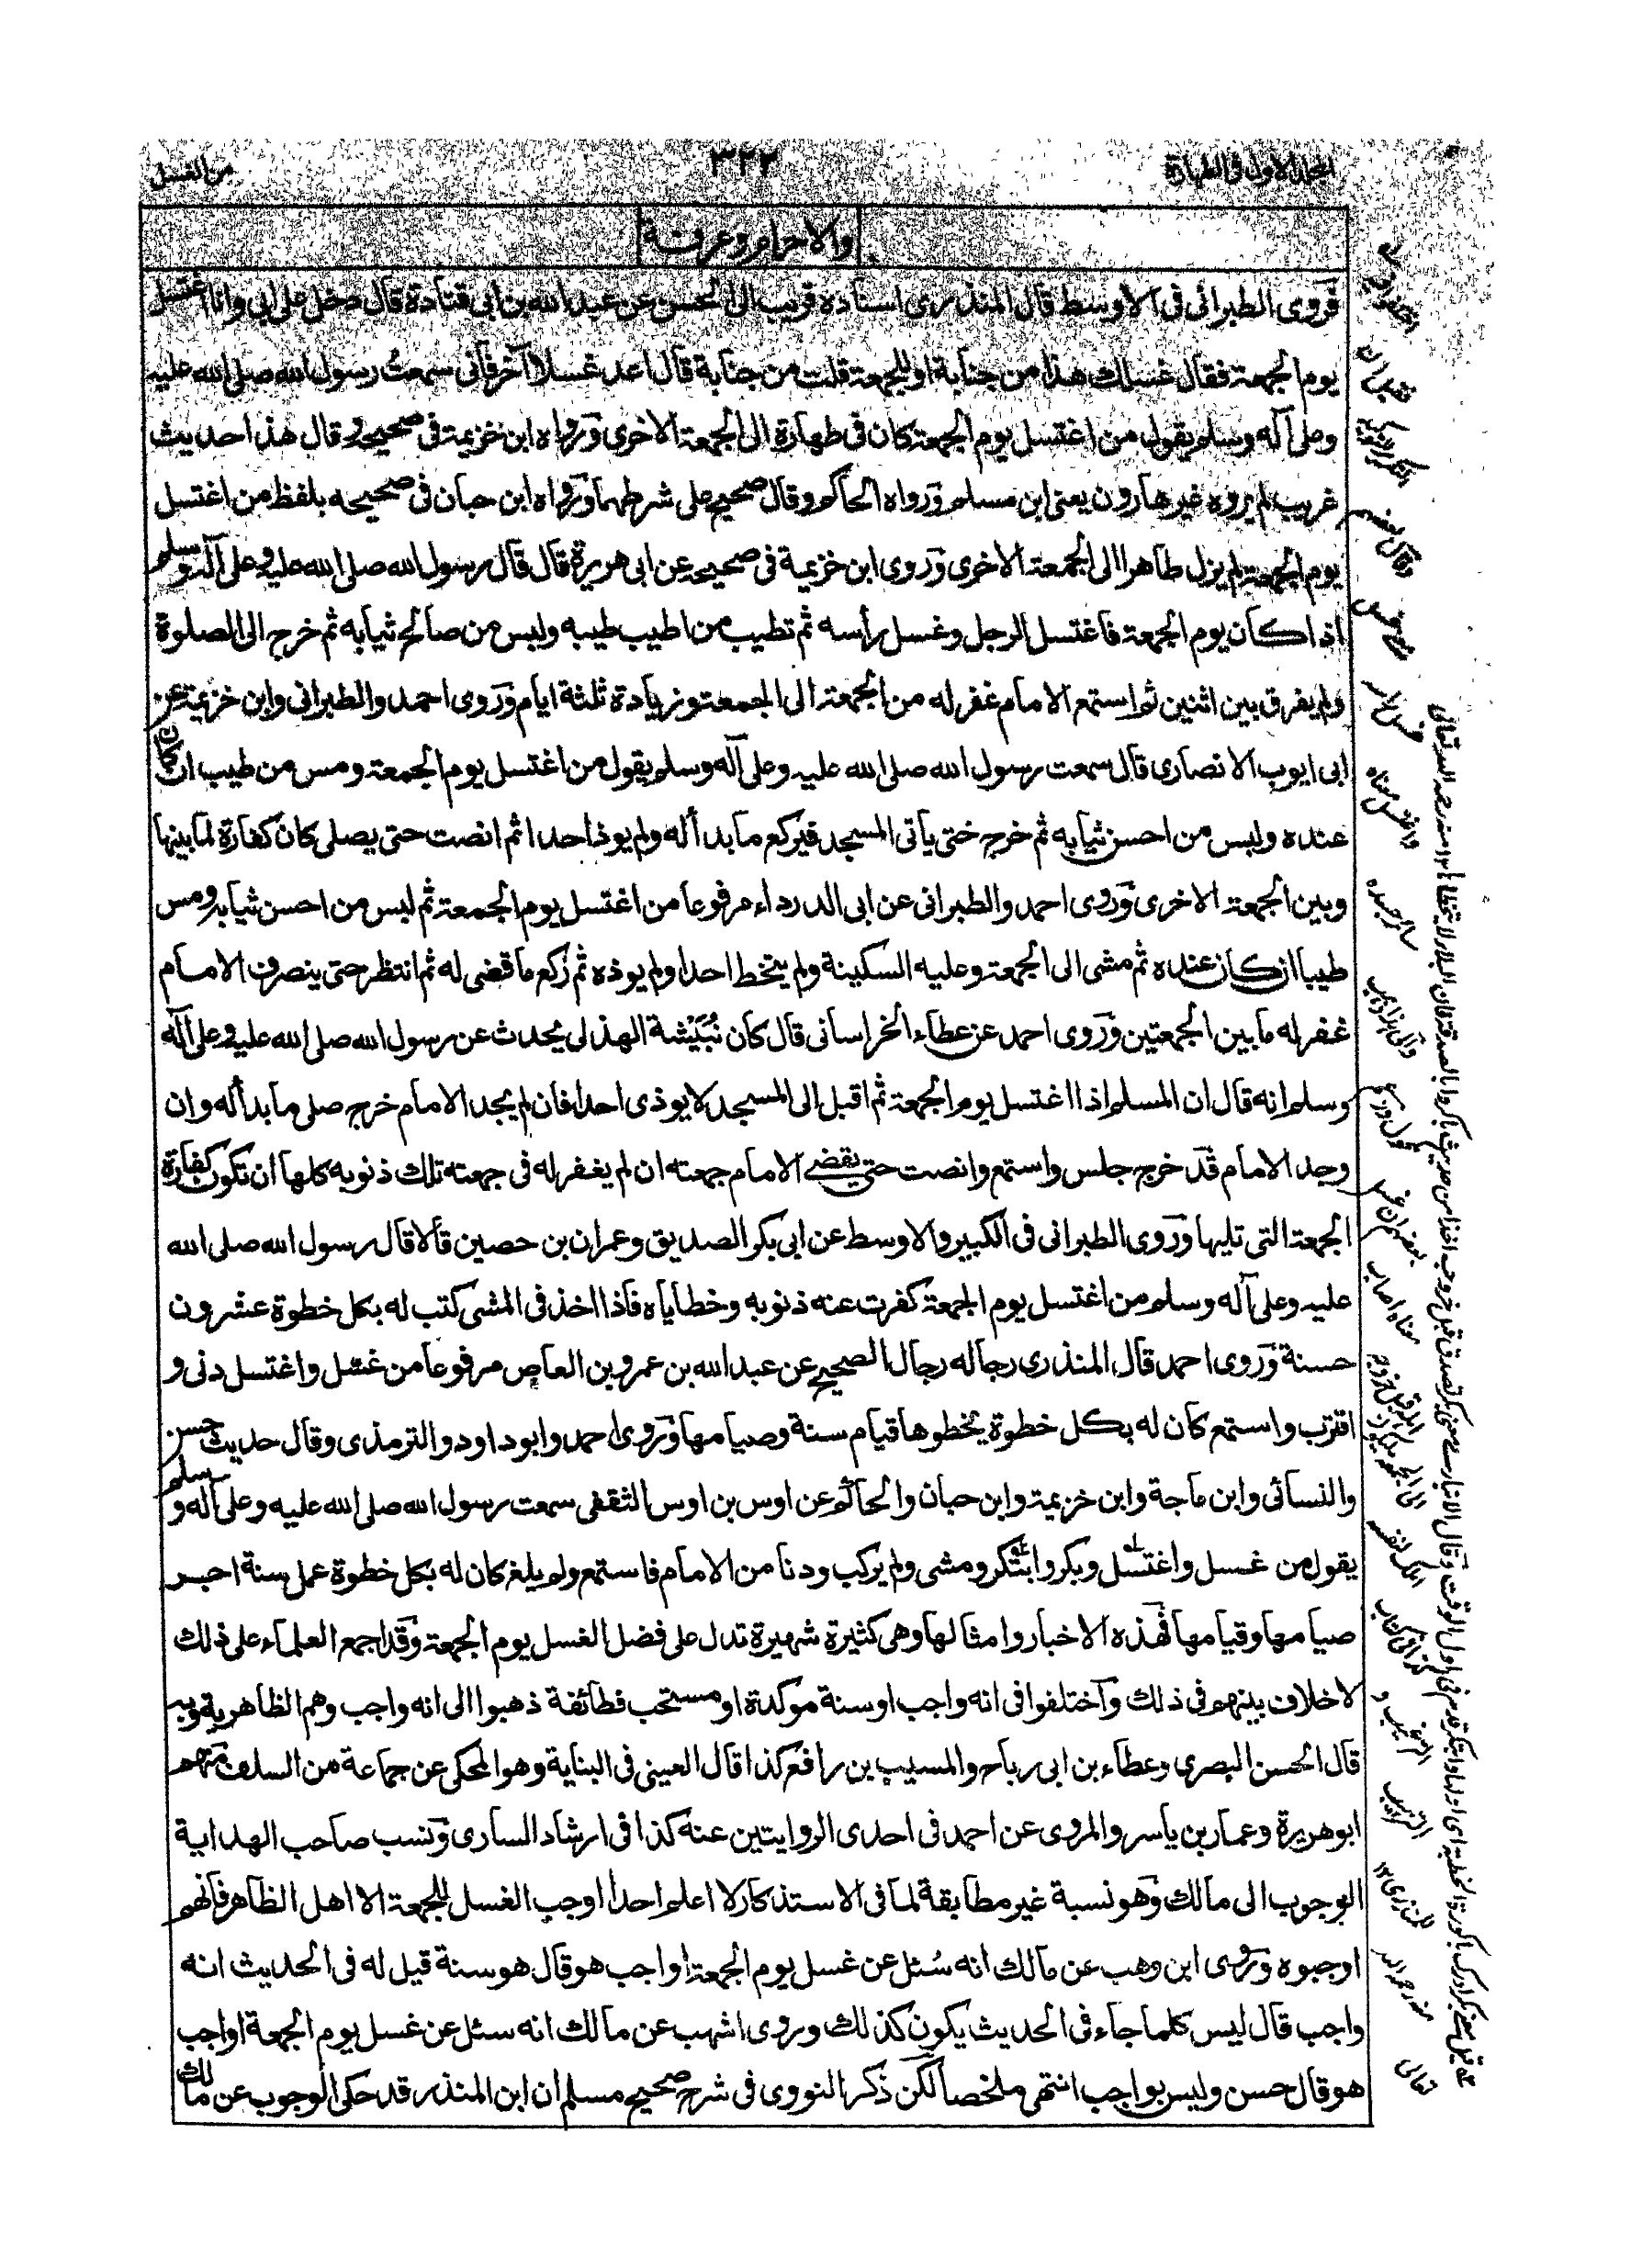 المجلد الاول فى الطهارة
٣٢٢
من الغسل
والاحرام وعرفة
فروى الطبرانى فى الاوسط قال المنذرى اسناده قريب الى الحسن عن عبد الله بن ابى قتادة قال دخل على ابى وانا اغتسل
يوم الجمعة فقال غسلك هذا من جنابة او للجمعة قلت من جنابة قال اعد غسلا آخر فانى سمعت رسول الله صلى الله عليه
وعلى آله وسلم يقول من اغتسل يوم الجمعة كان فى طهارة الى الجمعة الاخرى ورواه ابن خزيمة فى صحيحه وقال هذا حديث
غريب لم يروه غير هارون يعنى ابن مسلم ورواه الحاكم وقال صحيح على شرطهما ورواه ابن حبان فى صحيحه بلفظ من اغتسل
يوم الجمعة لم يزل طاهرا الى الجمعة الاخرى وروى ابن خزيمة فى صحيحه عن ابى هريرة قال قال رسول الله صلى الله عليه وعلى آله وسلم
اذا كان يوم الجمعة فاغتسل الرجل وغسل رأسه ثم تطيب من اطيب طيبه ولبس من صالح ثيابه ثم خرج الى الصلوة
ولم يفرق بين اثنين ثم استمع الامام غفر له من الجمعة الى الجمعة وزيادة ثلثة ايام وروى احمد والطبرانى وابن خزيمة عن
ابى ايوب الانصارى قال سمعت رسول الله صلى الله عليه وعلى آله وسلم يقول من اغتسل يوم الجمعة ومس من طيب ان كان
عنده ولبس من احسن ثيابه ثم خرج حتى يأتى المسجد فيركع ما بدأ له ولم يوذ احدا ثم انصت حتى يصلى كان كفارة لما بينها
وبين الجمعة الاخرى وروى احمد والطبرانى عن ابى الدرداء مرفوعا من اغتسل يوم الجمعة ثم لبس من احسن ثيابه ومس
طيبا ان كان عنده ثم مشى الى الجمعة وعليه السكينة ولم يتخط احدا ولم يوذه ثم ركع ما قضى له ثم انتظر حتى ينصرف الامام
غفر له ما بين الجمعتين وروى احمد عن عطاء الخراسانى قال كان نُبَيْشة الهذلى يحدث عن رسول الله صلى الله عليه وعلى آله
وسلم انه قال ان المسلم اذا اغتسل يوم الجمعة ثم اقبل الى المسجد لا يوذى احدا فان لم يجد الامام خرج صلى ما بدأ له وان
وجد الامام قد خرج جلس واستمع وانصت حتى يقضى الامام جمعته ان لم يغفر له فى جمعته تلك ذنوبه كلها ان تكون كفارة
الجمعة التى تليها وروى الطبرانى فى الكبير والاوسط عن ابى بكر الصديق وعمران بن حصين قالا قال رسول الله صلى الله
عليه وعلى آله وسلم من اغتسل يوم الجمعة كفرت عنه ذنوبه وخطاياه فاذا اخذ فى المشى كتب له بكل خطوة عشرون
حسنة وروى احمد قال المنذرى رجاله رجال الصحيح عن عبد الله بن عمرو بن العاص مرفوعا من غسّل واغتسل دنى و
اقترب واستمع كان له بكل خطوة يخطوها قيام سنة وصيامها وروى احمد وابو داود والترمذى وقال حديث حسن
والنسائى وابن ماجة وابن خزيمة وابن حبان والحاكم عن اوس بن اوس الثقفى سمعت رسول الله صلى الله عليه وعلى آله وسلم
يقول من غسل واغتسل وبكر وابتكر ومشى ولم يركب ودنا من الامام فاستمع ولم يلغ كان له بكل خطوة عمل سنة اجر
صيامها وقيامها فهذه الاخبار وامثالها وهى كثيرة شهيرة تدل على فضل الغسل يوم الجمعة وقد اجمع العلماء على ذلك
لا خلاف بينهم فى ذلك واختلفوا فى انه واجب او سنة موكدة او مستحب فطائفة ذهبوا الى انه واجب وهم الظاهرية وبه
قال الحسن البصرى وعطاء بن ابى رباح والمسيب بن رافع كذا قال العينى فى البناية وهو المحكى عن جماعة من السلف منهم
ابو هريرة وعمار بن ياسر والمروى عن احمد فى احدى الروايتين عنه كذا فى ارشاد السارى ونسب صاحب الهداية
الوجوب الى مالك وهو نسبة غير مطابقة لما فى الاستذكار لا اعلم احدا اوجب الغسل للجمعة الا اهل الظاهر فانهم
اوجبوه وروى ابن وهب عن مالك انه سُئل عن غسل يوم الجمعة اواجب هو قال هو سنة قيل له فى الحديث انه
واجب قال ليس كلما جاء فى الحديث يكون كذلك وروى اشهب عن مالك انه سئل عن غسل يوم الجمعة اواجب
هو قال حسن وليس بواجب انتهى ملخصا لكن ذكر النووى فى شرح صحيح مسلم ان ابن المنذر قد حكى الوجوب عن مالك